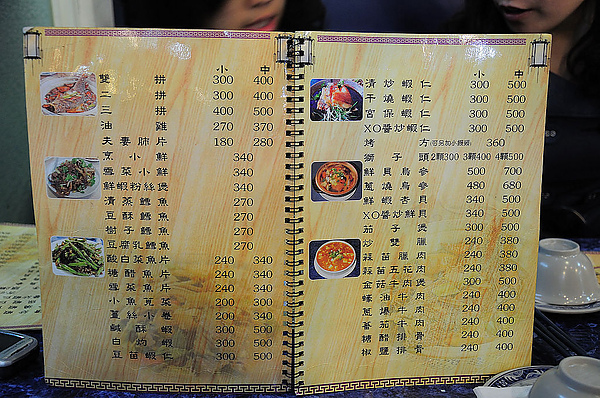 小 中
雙拼 300 400
二拼 300 400
三拼 400 500
油雞 270 370
夫妻肺片 180 280
烹小鮮 340
雪菜小鮮 340
鮮蝦粉絲煲 340
清蒸鱈魚 270
豆酥鱈魚 270
樹子鱈魚 270
豆腐乳鱈魚 270
酸白菜魚片 240 340
糖醋魚片 240 340
雪菜魚片 240 340
小魚莧菜 200 300
薑絲小卷 200 340
鹹酥蝦 300 500
白灼蝦 300 500
豆苗蝦仁 300 500
小 中
清炒蝦仁 300 500
干燒蝦仁 300 500
宮保蝦仁 300 500
XO醬炒蝦仁 300 500
烤方 360
獅子頭 2顆300 3顆400 4顆500
鮮貝烏參 500 700
蔥燒烏參 480 680
鮮蝦杏貝 340 500
XO醬炒鮮貝 340 500
茄子煲 240 500
炒雙臘 240 380
蒜苗臘肉 240 380
蒜泥五花肉 240 380
金菇牛肉煲 300 500
蠔油牛肉 240 400
蔥爆牛肉 240 400
蕃茄牛肉 240 400
糖醋排骨 240 400
椒鹽排骨 240 400